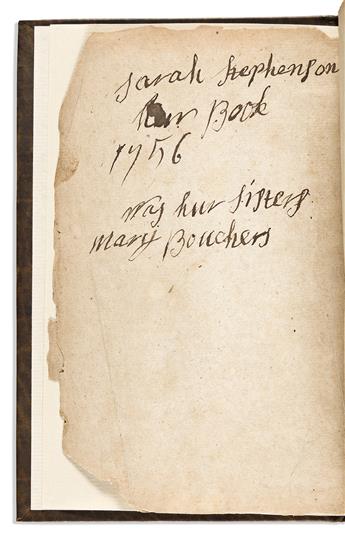 Sarah Stephenson
hur Book
1756
Was hur Sisters
Mary Bouchers